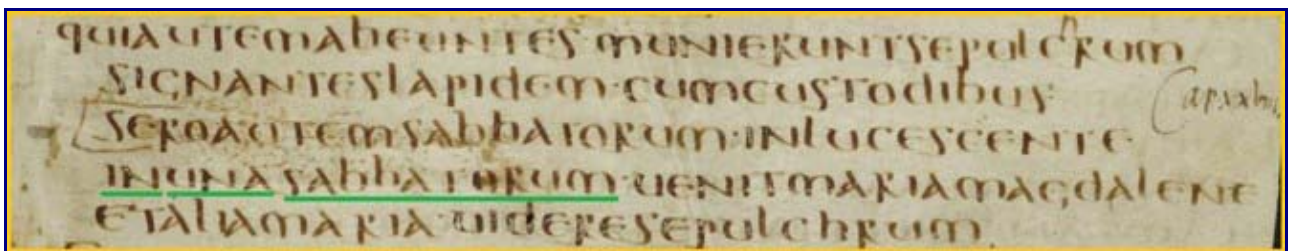 quiautemabeuntes munieruntsepulchrum
signanteslapidem·cumcustodibus·
seroautemsabbatorum·inlucescente·
inunasabbatorum·uenitmariamagdalene
etaliamaria·uideresepulchrum